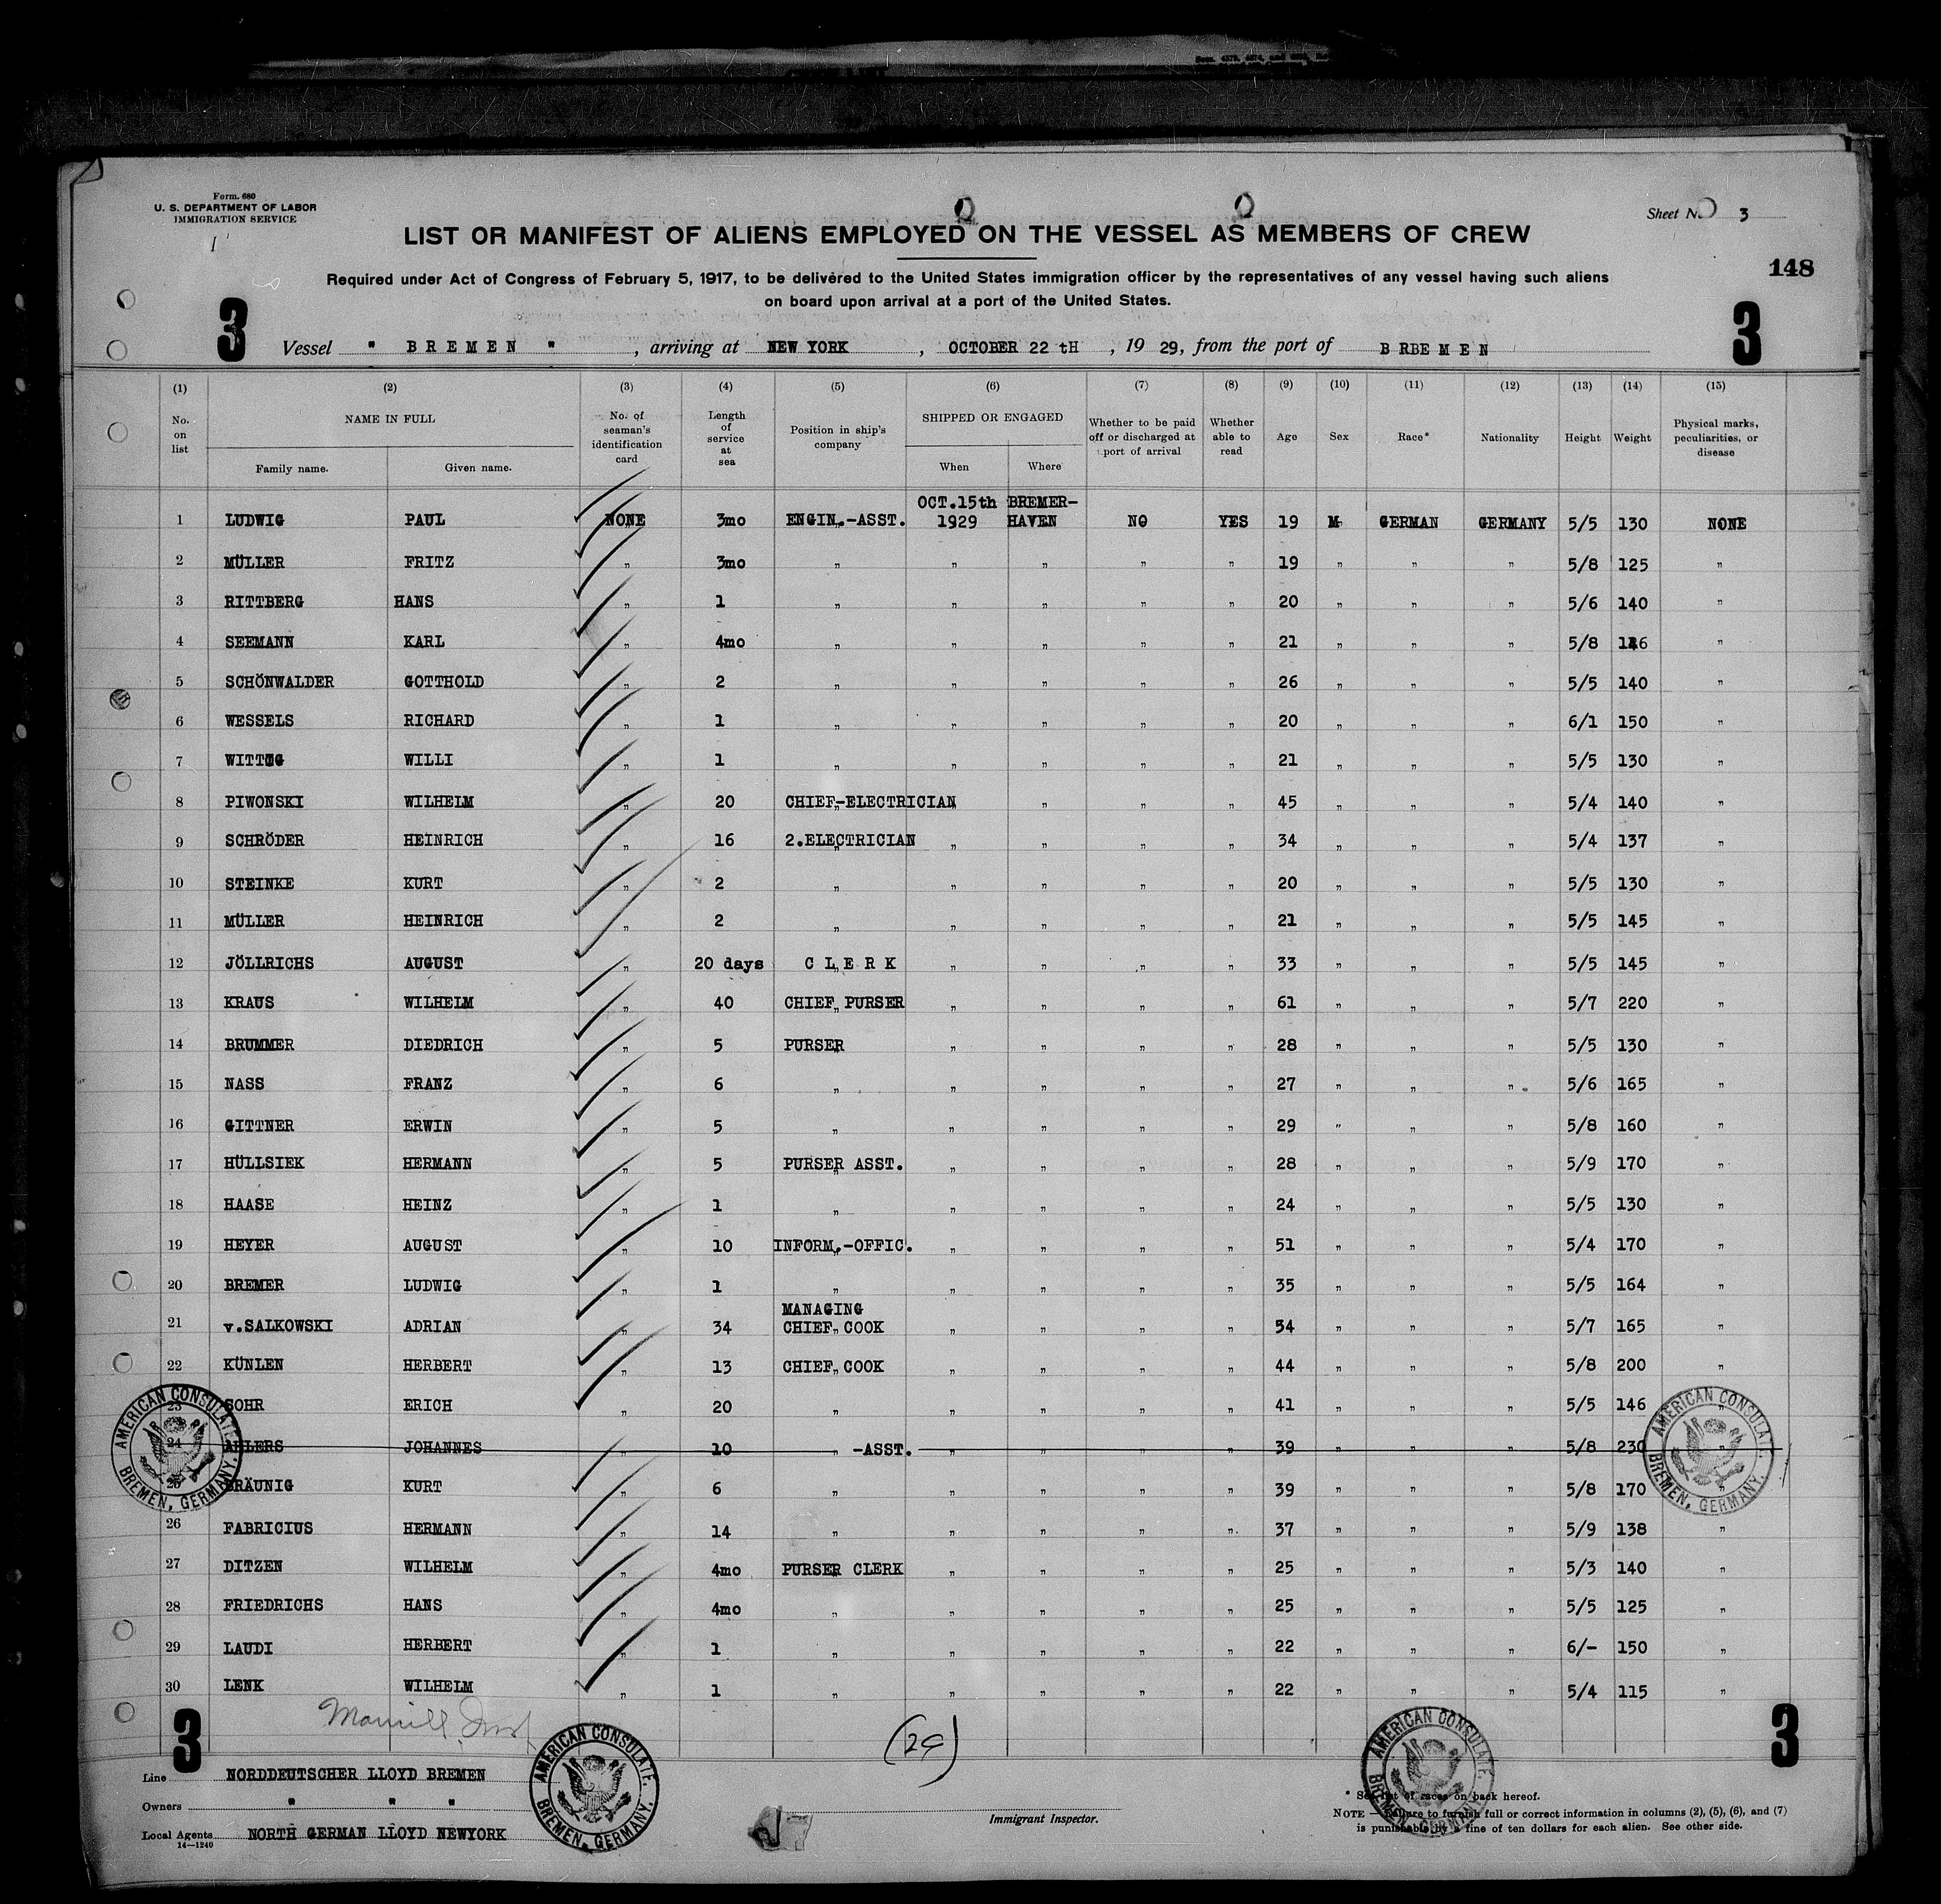 Form. 680
U. S. DEPARTMENT OF LABOR
IMMIGRATION SERVICE
Sheet No. 3
148
LIST OR MANIFEST OF ALIENS EMPLOYED ON THE VESSEL AS MEMBERS OF CREW
Required under Act of Congress of February 5, 1917, to be delivered to the United States immigration officer by the representatives of any vessel having such aliens
on board upon arrival at a port of the United States.
3 3
Vessel " BREMEN ", arriving at NEW YORK, OCTOBER 22 tH, 19 29, from the port of B RBE M E N
(1) (2) (3) (4) (5) (6) (7) (8) (9) (10) (11) (12) (13) (14) (15)
No. on list NAME IN FULL Family name. Given name. No. of seaman's identification card Length of service at sea Position in ship's company SHIPPED OR ENGAGED When Where Whether to be paid off or discharged at port of arrival Whether able to read Age Sex Race* Nationality Height Weight Physical marks, peculiarities, or disease
1 LUDWIG PAUL NONE 3mo ENGIN.-ASST. OCT.15th 1929 BREMER-HAVEN NO YES 19 M GERMAN GERMANY 5/5 130 NONE
2 MÜLLER FRITZ " 3mo " " " " " 19 " " " 5/8 125 "
3 RITTBERG HANS " 1 " " " " " 20 " " " 5/6 140 "
4 SEEMANN KARL " 4mo " " " " " 21 " " " 5/8 "
5 SCHÖNWALDER GOTTHOLD " 2 " " " " " 26 " " " 5/5 140 "
6 WESSELS RICHARD " 1 " " " " " 20 " " " 6/1 150 "
7 WITTIG WILLI " 1 " " " " " 21 " " " 5/5 130 "
8 PIWONSKI WILHELM " 20 CHIEF-ELECTRICIAN " " " " 45 " " " 5/4 140 "
9 SCHRÖDER HEINRICH " 16 2.ELECTRICIAN " " " " 34 " " " 5/4 137 "
10 STEINKE KURT " 2 " " " " " 20 " " " 5/5 130 "
11 MÜLLER HEINRICH " 2 " " " " " 21 " " " 5/5 145 "
12 JÖLLRICHS AUGUST " 20 days C L E R K " " " " 33 " " " 5/5 145 "
13 KRAUS WILHELM " 40 CHIEF PURSER " " " " 61 " " " 5/7 220 "
14 BRUMMER DIEDRICH " 5 PURSER " " " " 28 " " " 5/5 130 "
15 NASS FRANZ " 6 " " " " " 27 " " " 5/6 165 "
16 GITTNER ERWIN " 5 " " " " " 29 " " " 5/8 160 "
17 HÜLLSIEK HERMANN " 5 PURSER ASST. " " " " 28 " " " 5/9 170 "
18 HAASE HEINZ " 1 " " " " " 24 " " " 5/5 130 "
19 HEYER AUGUST " 10 INFORM.-OFFIC. " " " " 51 " " " 5/4 170 "
20 BREMER LUDWIG " 1 " " " " " 35 " " " 5/5 164 "
21 v.SALKOWSKI ADRIAN " 34 MANAGING CHIEF COOK " " " " 54 " " " 5/7 165 "
22 KÜNLEN HERBERT " 13 CHIEF COOK " " " " 44 " " " 5/8 200 "
23 SOHR ERICH " 20 " " " " " 41 " " " 5/5 146 "
24 AHLERS JOHANNES " 10 " -ASST. " " " " 39 " " " 5/8 230 "
25 BRÄUNIG KURT " 6 " " " " " 39 " " " 5/8 170 "
26 FABRICIUS HERMANN " 14 " " " " " 37 " " " 5/9 138 "
27 DITZEN WILHELM " 4mo PURSER CLERK " " " " 25 " " " 5/3 140 "
28 FRIEDRICHS HANS " 4mo " " " " " 25 " " " 5/5 125 "
29 LAUDI HERBERT " 1 " " " " " 22 " " " 6/- 150 "
30 LENK WILHELM " 1 " " " " " 22 " " " 5/4 115 "
AMERICAN CONSULATE. BREMEN, GERMANY.
AMERICAN CONSULAT. BREMEN, GERMANY.
3 3
AMERICAN CONSULATE. BREMEN, GERMANY.
AMERICAN CONSULATE. BREMEN, GERMANY.
(29)
Line NORDDEUTSCHER LLOYD BREMEN
Owners " " "
Local Agents NORTH GERMAN LLOYD NEWYORK
14—1240
Immigrant Inspector.
* See list of races on back hereof.
NOTE.—Failure to furnish full or correct information in columns (2), (5), (6), and (7)
is punishable by a fine of ten dollars for each alien. See other side.